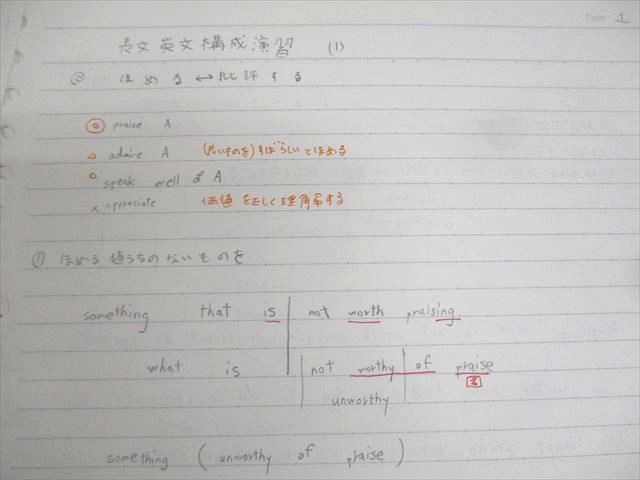 Date 1
長文英文構成演習 (1)
◎ ほめる ↔ 批評する
◎ praise A
△ admire A (良いものを)すばらしいとほめる
○ speak well of A
× appreciate 価値を正しく理解する
① ほめる値うちのないものを
something that is not worth praising
what is not worthy of praise
名
unworthy
something (unworthy of praise)